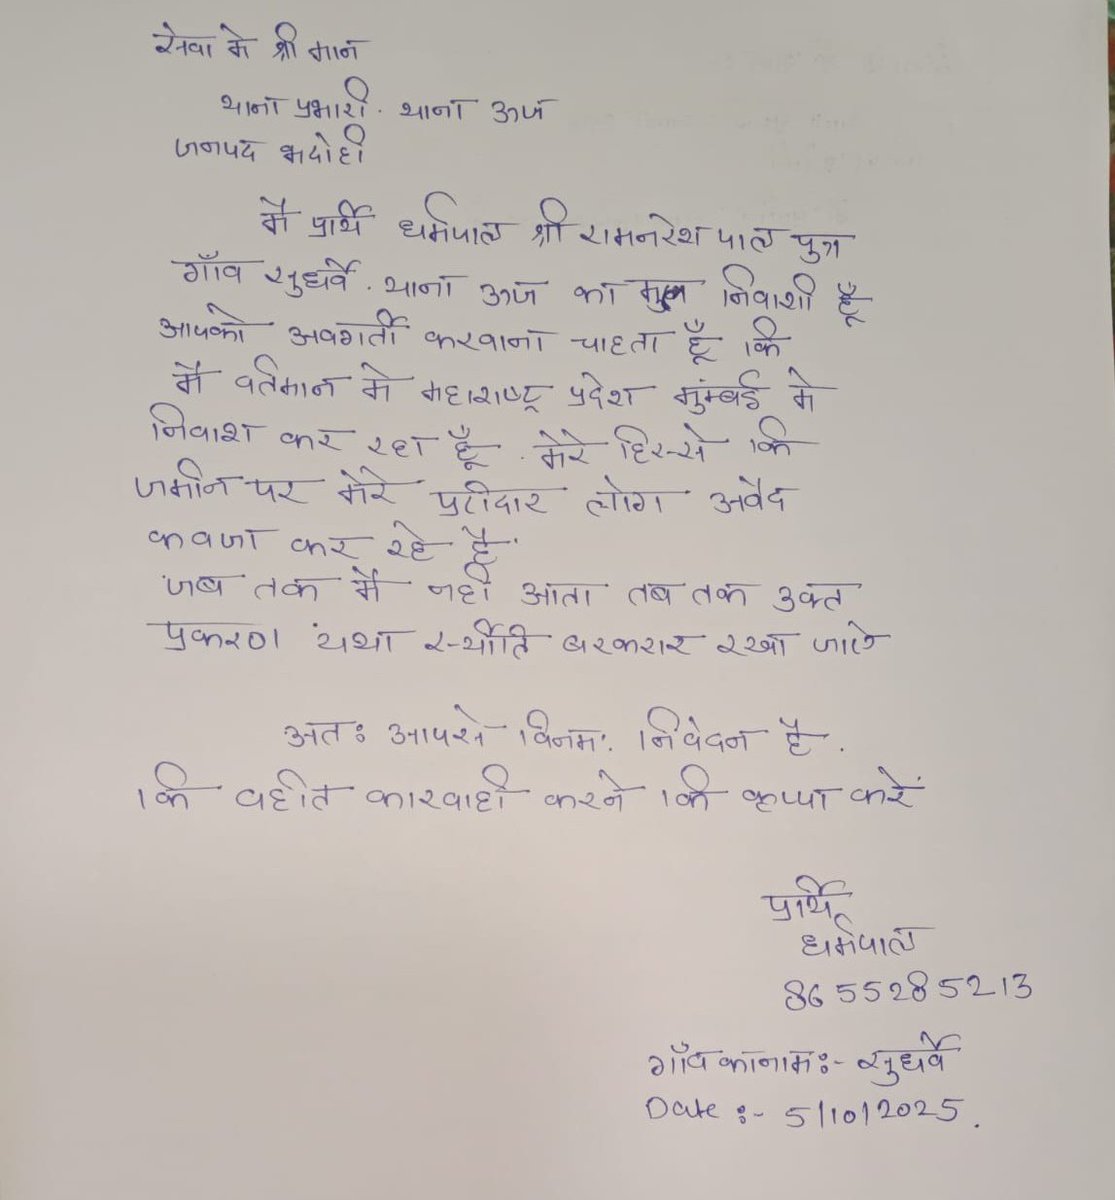 सेवा मे श्री मान
थाना प्रभारी. थाना ऊज
जनपद भदोही
मै प्रार्थी धर्मपाल श्री रामनरेश पाल पुत्र
गाँव सुधवै. थाना ऊज का मुल निवाशी हूँ
आपको अवगर्ती करवाना चाहता हूँ कि
मै वर्तमान मे महाराष्ट्र प्रदेश मुंम्बई मे
निवाश कर रहा हूँ. मेरे हिस्से कि
जमीन पर मेरे पटीदार लोग अवैद
कवजा कर रहे है
जब तक मै नही आता तब तक उक्त
प्रकरण यथा स्थीति बरकरार रखा जाऐ
अतः आपसे विनम्र. निवेदन है.
कि वहीत कारवाही करने कि कृप्पा करें
प्रार्थी
धर्मपाल
8655285213
गाँव का नाम :- सुधवै
Date :- 5/10/2025.